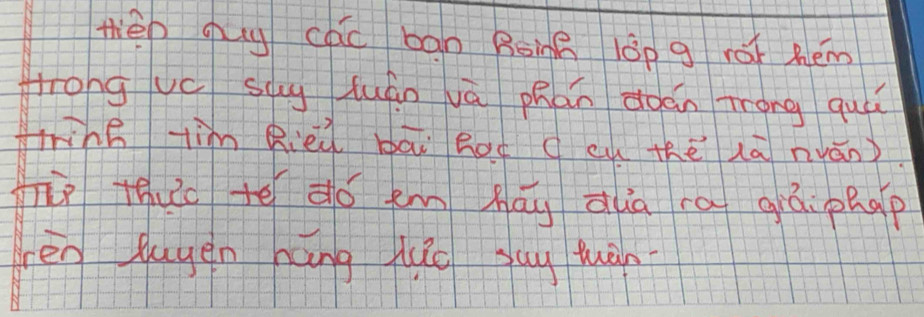 Hiện nay các bạn hsinh lớp 9 rất kém
trong vc suy luận và phán đoán trong quá
trình tìm hiểu bài học ( cụ thể là nvăn).
Từ thực tế đó em hãy đưa ra giải pháp
rèn luyện năng lực suy luận.